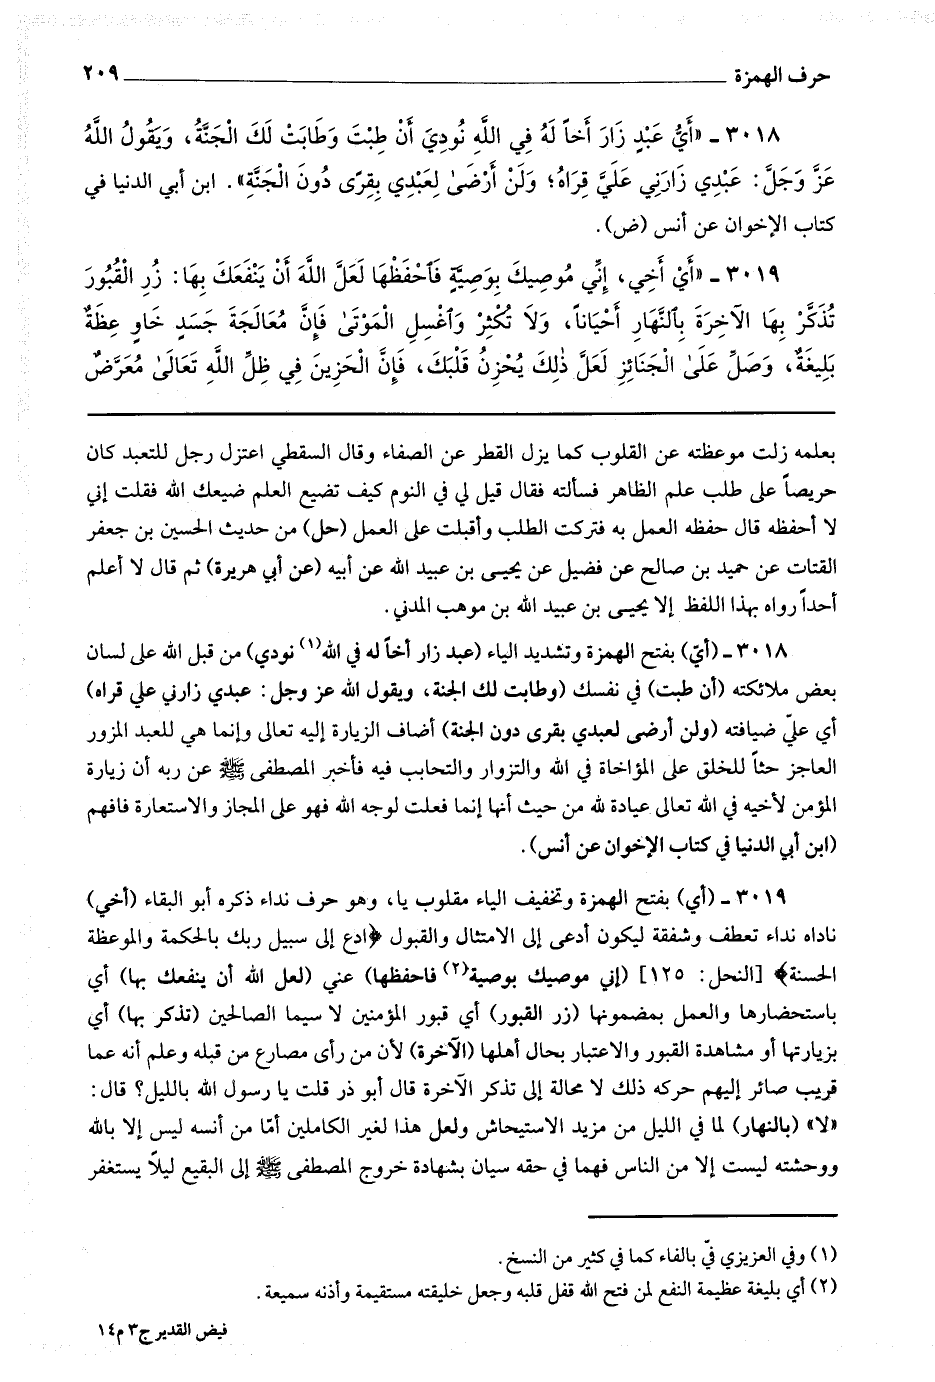 حرف الهمزة ٢٠٩
٣٠١٨ ـ «أَيُّ عَبْدٍ زَارَ أَخاً لَهُ فِي اللَّهِ نُودِيَ أَنْ طِبْتَ وَطَابَتْ لَكَ الْجَنَّةُ، وَيَقُولُ اللَّهُ
عَزَّ وَجَلَّ: عَبْدِي زَارَنِي عَلَيَّ قِرَاهُ؛ وَلَنْ أَرْضَىٰ لِعَبْدِي بِقِرًى دُونَ الْجَنَّةِ». ابن أبي الدنيا في
كتاب الإخوان عن أنس (ض).
٣٠١٩ ـ «أَيْ أَخِي، إِنِّي مُوصِيكَ بِوَصِيَّةٍ فَاحْفَظْهَا لَعَلَّ اللَّهَ أَنْ يَنْفَعَكَ بِهَا: زُرِ الْقُبُورَ
تُذَكَّرْ بِهَا الآخِرَةَ بِالنَّهَارِ أَحْيَاناً، وَلاَ تُكْثِرْ وَاغْسِلِ الْمَوْتَىٰ فَإِنَّ مُعَالَجَةَ جَسَدٍ خَاوٍ عِظَةٌ
بَلِيغَةٌ، وَصَلِّ عَلَىٰ الْجَنَائِزِ لَعَلَّ ذٰلِكَ يُحْزِنُ قَلْبَكَ، فَإِنَّ الْحَزِينَ فِي ظِلِّ اللَّهِ تَعَالَىٰ مُعَرَّضٌ
بعلمه زلت موعظته عن القلوب كما يزل القطر عن الصفاء وقال السقطي اعتزل رجل للتعبد كان
حريصاً على طلب علم الظاهر فسألته فقال قيل لي في النوم كيف تضيع العلم ضيعك الله فقلت إني
لا أحفظه قال حفظه العمل به فتركت الطلب وأقبلت على العمل (حل) من حديث الحسين بن جعفر
القتات عن حميد بن صالح عن فضيل عن يحيـى بن عبيد الله عن أبيه (عن أبي هريرة) ثم قال لا أعلم
أحداً رواه بهذا اللفظ إلا يحيـى بن عبيد الله بن موهب المدني.
٣٠١٨ ـ (أيّ) بفتح الهمزة وتشديد الياء (عبد زار أخاً له في الله(١) نودي) من قبل الله على لسان
بعض ملائكته (أن طبت) في نفسك (وطابت لك الجنة، ويقول الله عز وجل: عبدي زارني علي قراه)
أي عليّ ضيافته (ولن أرضى لعبدي بقرى دون الجنة) أضاف الزيارة إليه تعالى وإنما هي للعبد المزور
العاجز حثاً للخلق على المؤاخاة في الله والتزوار والتحابب فيه فأخبر المصطفى ﷺ عن ربه أن زيارة
المؤمن لأخيه في الله تعالى عيادة لله من حيث أنها إنما فعلت لوجه الله فهو على المجاز والاستعارة فافهم
(ابن أبي الدنيا في كتاب الإخوان عن أنس).
٣٠١٩ ـ (أي) بفتح الهمزة وتخفيف الياء مقلوب يا، وهو حرف نداء ذكره أبو البقاء (أخي)
ناداه نداء تعطف وشفقة ليكون أدعى إلى الامتثال والقبول ﴿ادع إلى سبيل ربك بالحكمة والموعظة
الحسنة﴾ [النحل: ١٢٥] (إني موصيك بوصية(٢) فاحفظها) عني (لعل الله أن ينفعك بها) أي
باستحضارها والعمل بمضمونها (زر القبور) أي قبور المؤمنين لا سيما الصالحين (تذكر بها) أي
بزيارتها أو مشاهدة القبور والاعتبار بحال أهلها (الآخرة) لأن من رأى مصارع من قبله وعلم أنه عما
قريب صائر إليهم حركه ذلك لا محالة إلى تذكر الآخرة قال أبو ذر قلت يا رسول الله بالليل؟ قال:
«لا» (بالنهار) لما في الليل من مزيد الاستيحاش ولعل هذا لغير الكاملين أمّا من أنسه ليس إلا بالله
ووحشته ليست إلا من الناس فهما في حقه سيان بشهادة خروج المصطفى ﷺ إلى البقيع ليلاً يستغفر
(١) وفي العزيزي فيّ بالفاء كما في كثير من النسخ.
(٢) أي بليغة عظيمة النفع لمن فتح الله قفل قلبه وجعل خليقته مستقيمة وأذنه سميعة.
فيض القدير ج٣ م١٤